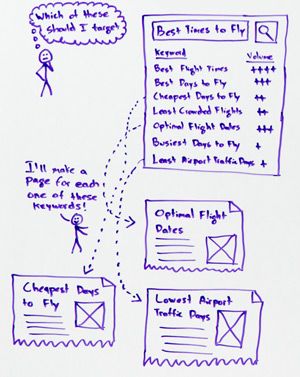 Which of these
should I target
Best Times to Fly
Keyword Volume
Best Flight Times ++++
Best Days to Fly +++
Cheapest Days to Fly ++
Least Crowded Flights ++
Optimal Flight Dates +++
Busiest Days to Fly +
Least Airport Traffic Days +
I'll make a
page for each
one of these
keywords!
Optimal Flight
Dates
Cheapest Days
to Fly
Lowest Airport
Traffic Days